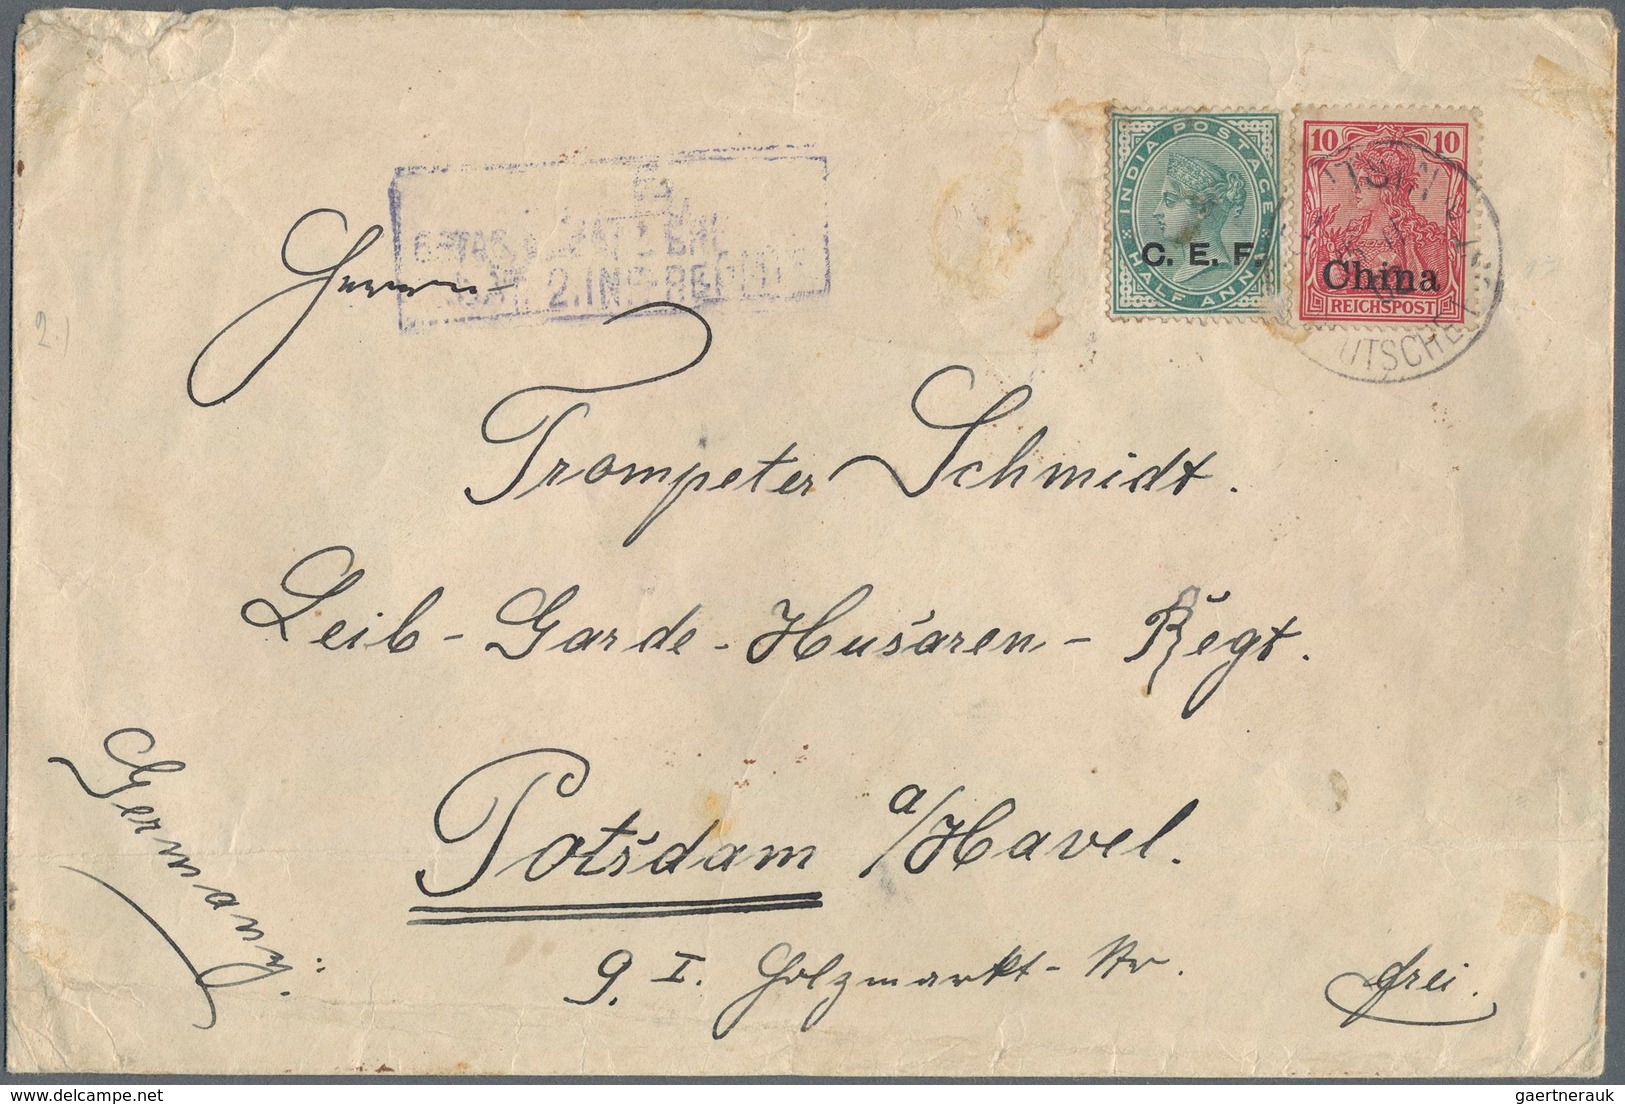 INDIA POSTAGE
C. E. F.
HALF ANNA
10 10
China
REICHSPOST
2. INF.
Herrn
Trompeter Schmidt.
Leib-Garde-Husaren-Regt.
Potsdam a/Havel.
9. I. Holzmarkt-Str.
frei.
Germany.
2.)
gaertnerauk